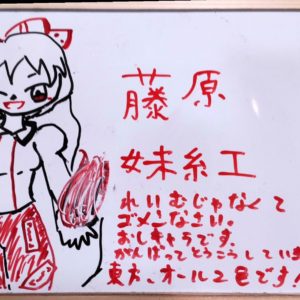 藤原
妹紅
れいむじゃなくて
ゴメンなさい。
おしキャラです。
がんばってとうこうしています
東方、オール2色です!